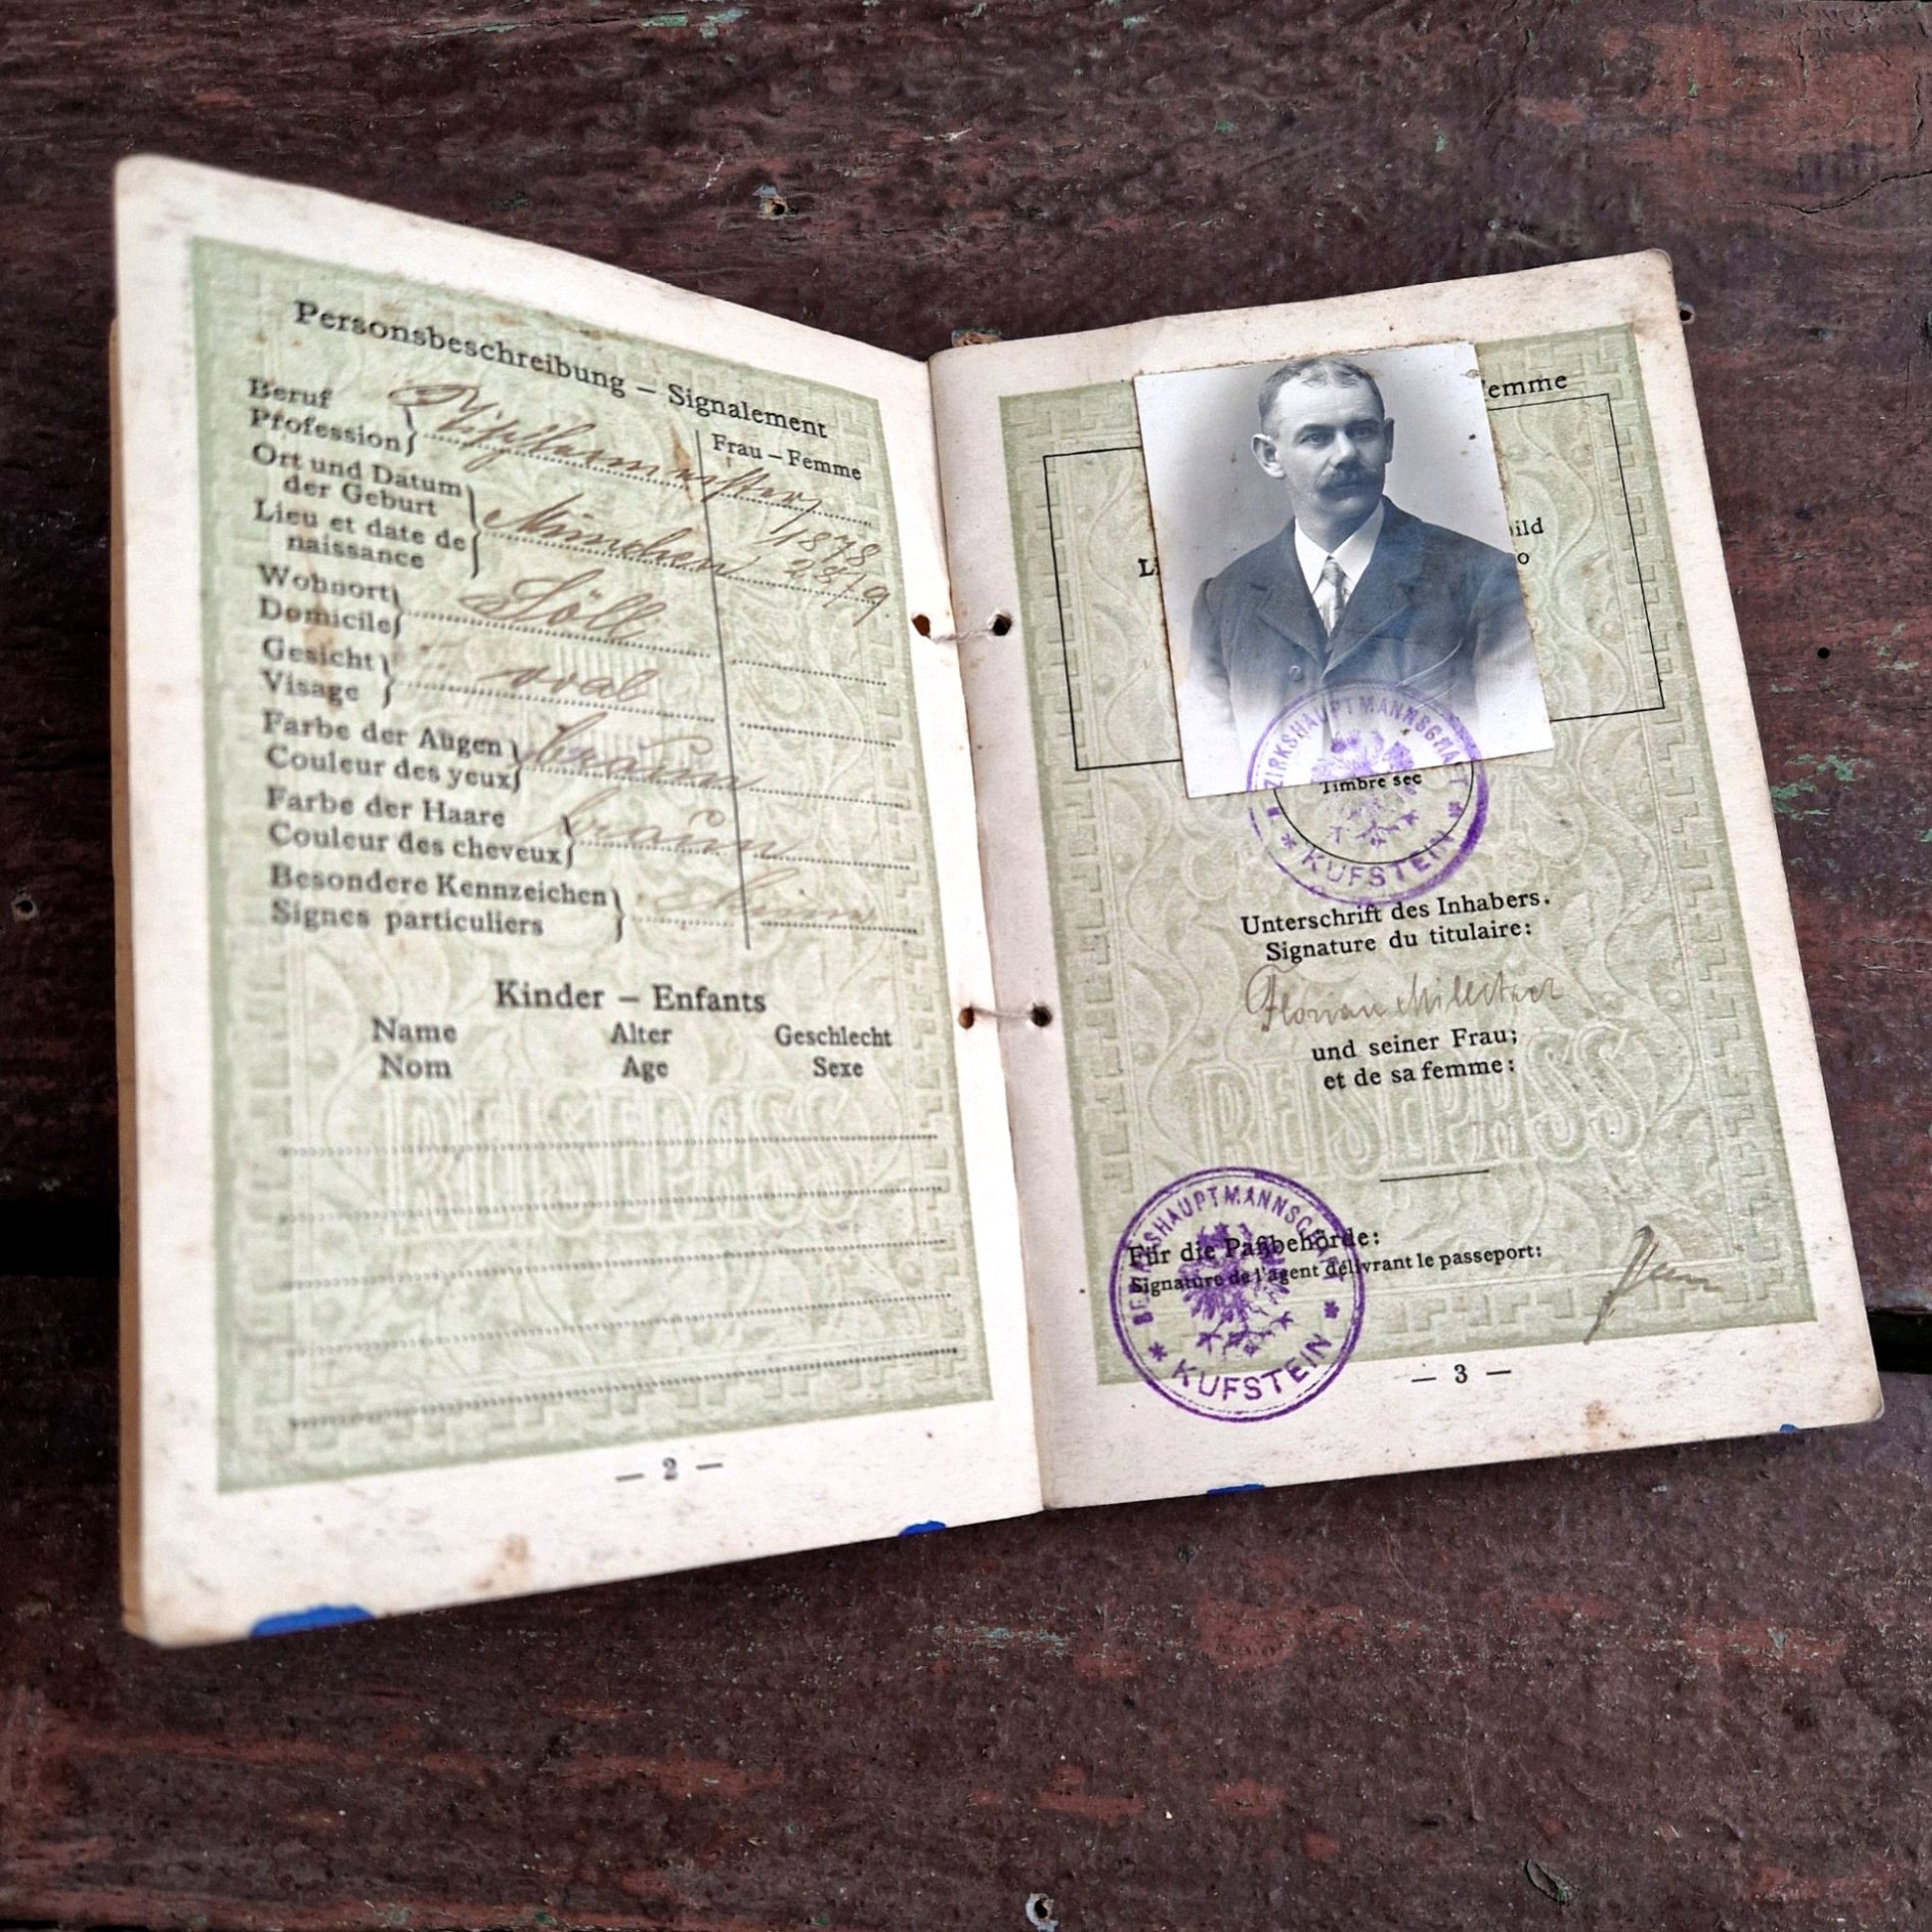 Personsbeschreibung – Signalement
Frau – Femme
Beruf
Profession
Ort und Datum
der Geburt
Lieu et date de
naissance
München
1878
Wohnort
Domicile
Söll
Gesicht
Visage
oval
Farbe der Augen
Couleur des yeux
braun
Farbe der Haare
Couleur des cheveux
braun
Besondere Kennzeichen
Signes particuliers
Kinder – Enfants
Name Alter Geschlecht
Nom Age Sexe
REISEPASS
— 2 —
emme
ild
Li
o
BEZIRKSHAUPTMANNSCHAFT
Timbre sec
* KUFSTEIN *
Unterschrift des Inhabers.
Signature du titulaire:
Florian Millitzer
und seiner Frau;
et de sa femme:
REISEPASS
BEZIRKSHAUPTMANNSCHAFT
Für die Paßbehörde:
Signature de l'agent délivrant le passeport:
* KUFSTEIN *
— 3 —